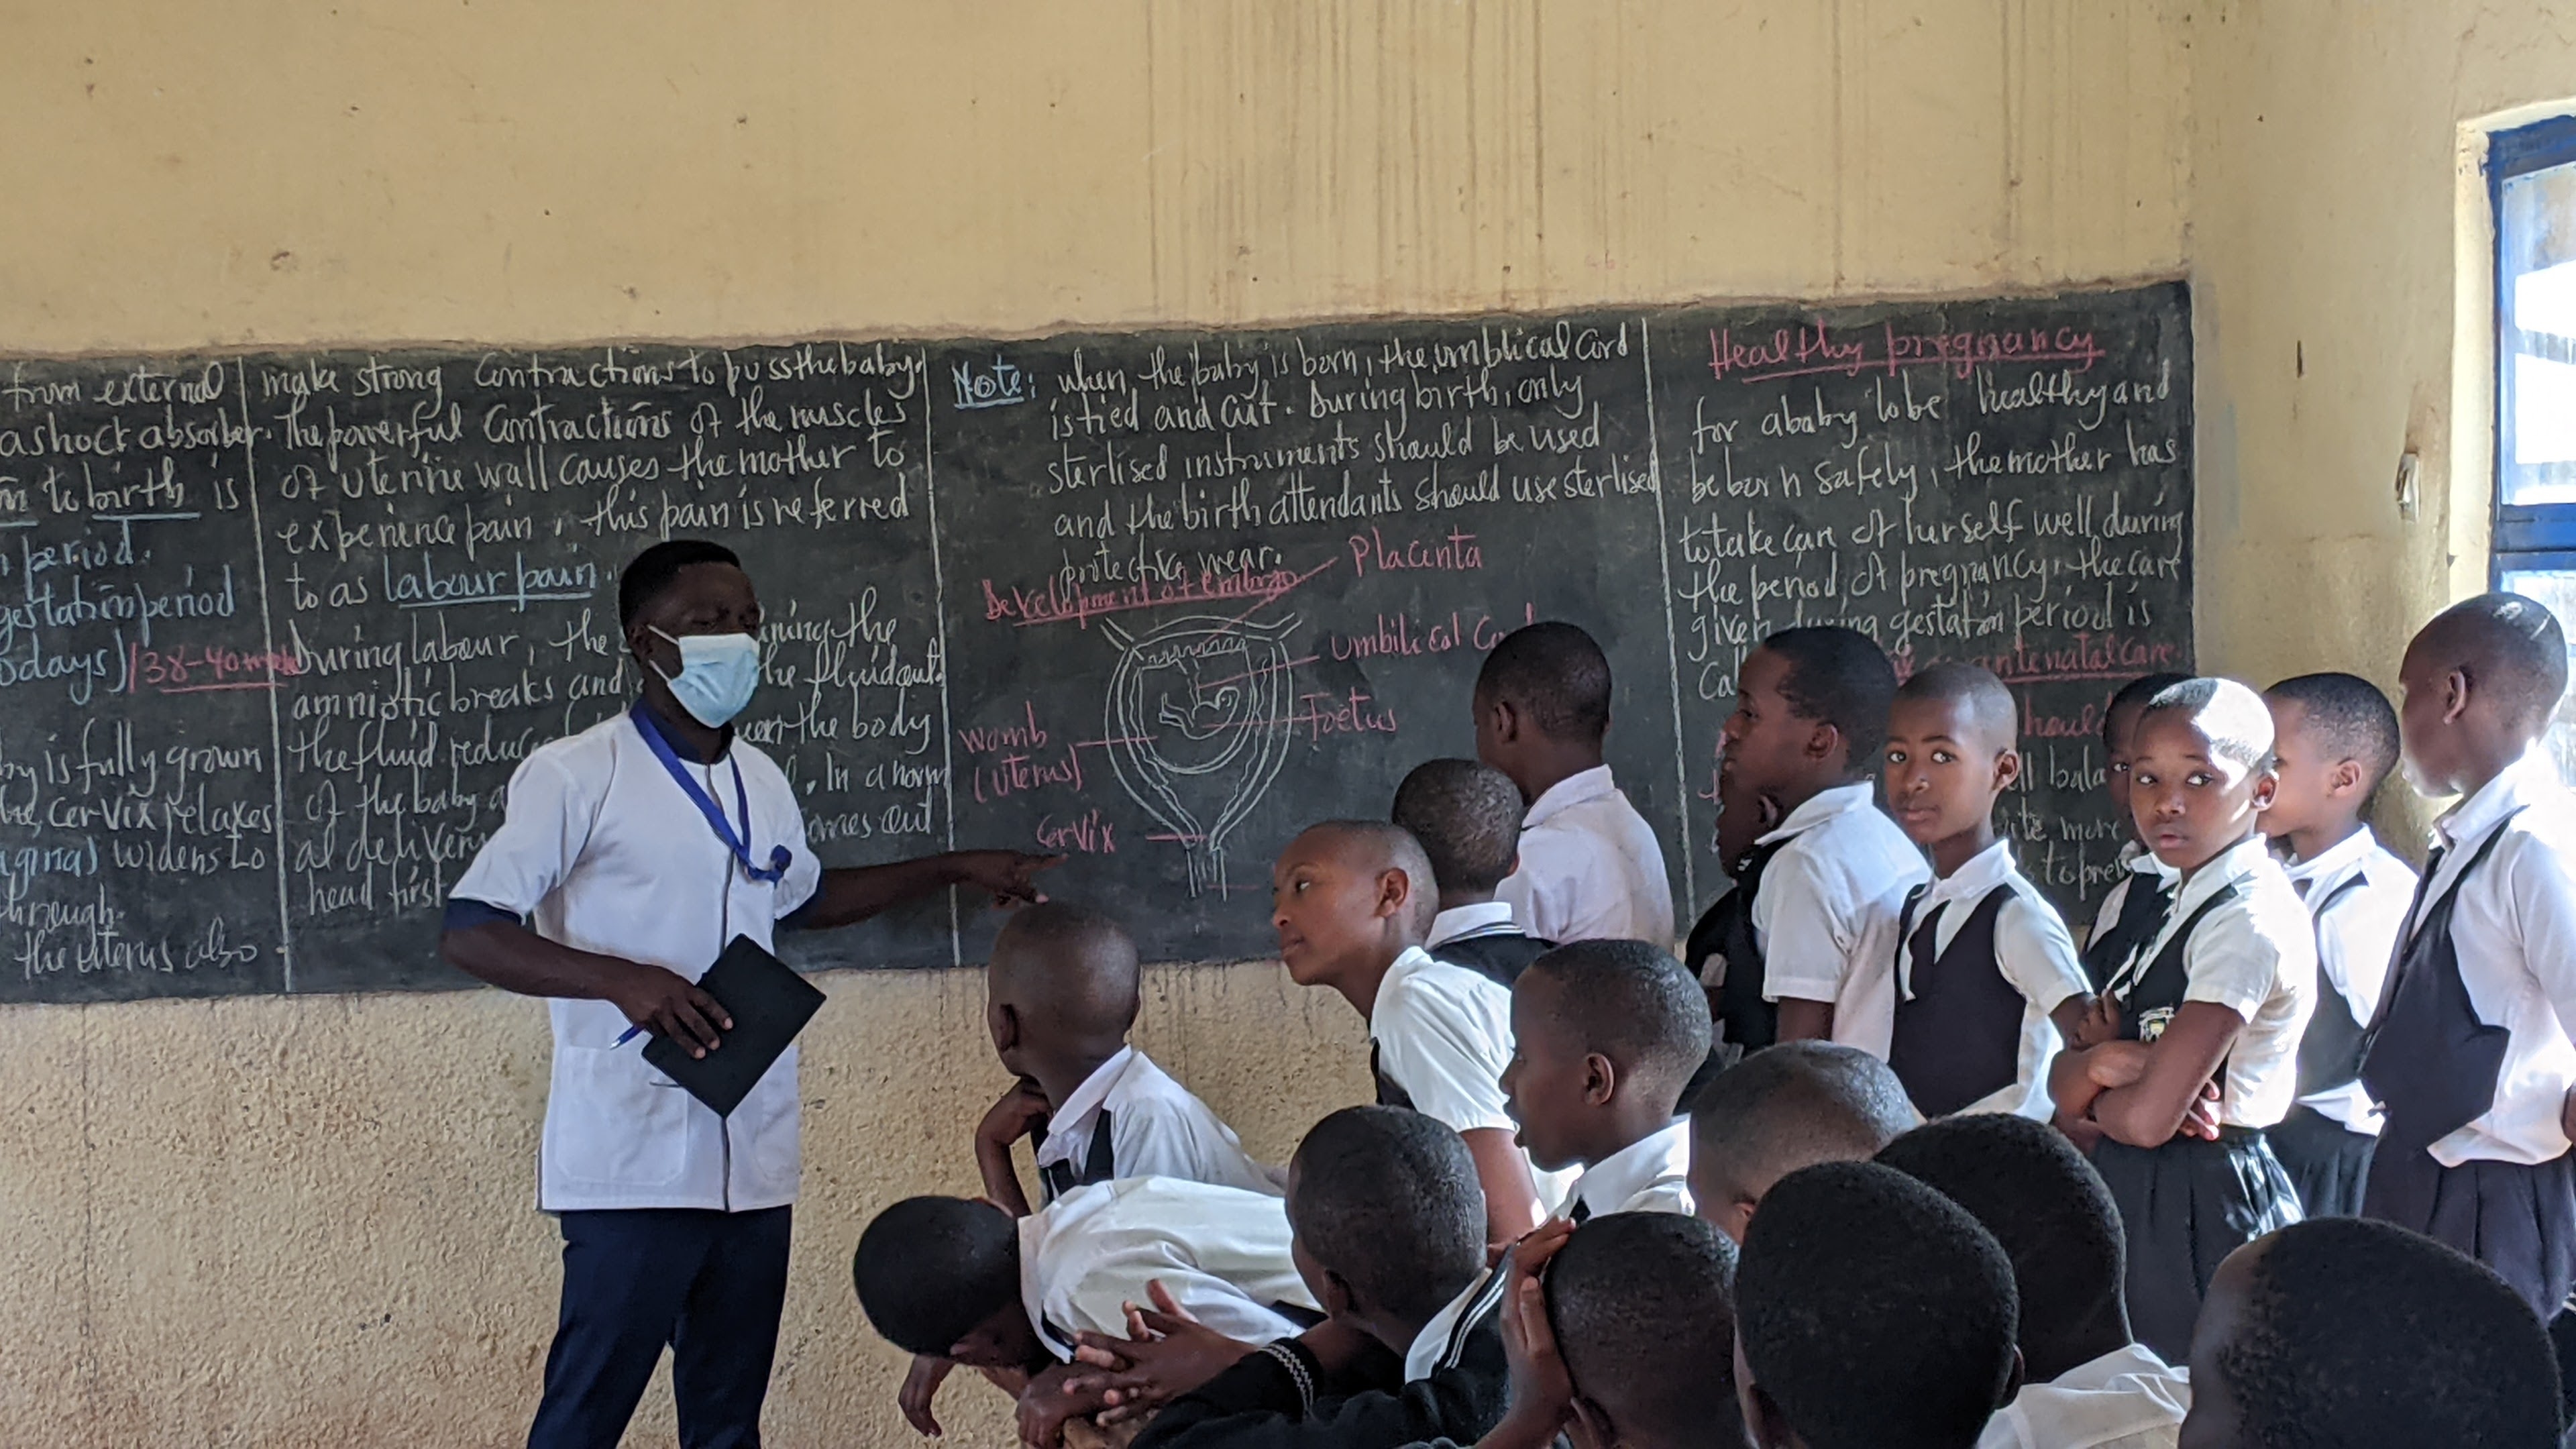 from external
a shock absorber.
to birth is
period.
gestation period
days) / 38-40
is fully grown
cervix relaxes
widens to
through.
the uterus also
make strong contractions to puss the baby.
The powerful contractions of the muscles
of uterine wall causes the mother to
experience pain, this pain is referred
to as labour pain.
During labour, the
amniotic breaks and the fluid out.
the fluid the body
of the baby In a
al delivery out
head first
Note: when the baby is born, the umblical cord
is tied and cut. During birth, only
sterlised instruments should be used
and the birth attendants should use sterlised
protective wear.
Development of embryo
Placenta
umbilical
Foetus
Womb
(uterus)
Cervix
Healthy pregnancy
for a baby to be healthy and
be born safely, the mother has
to take care of herself well during
the period of pregnancy, the care
given during gestation period is
antenatal care.